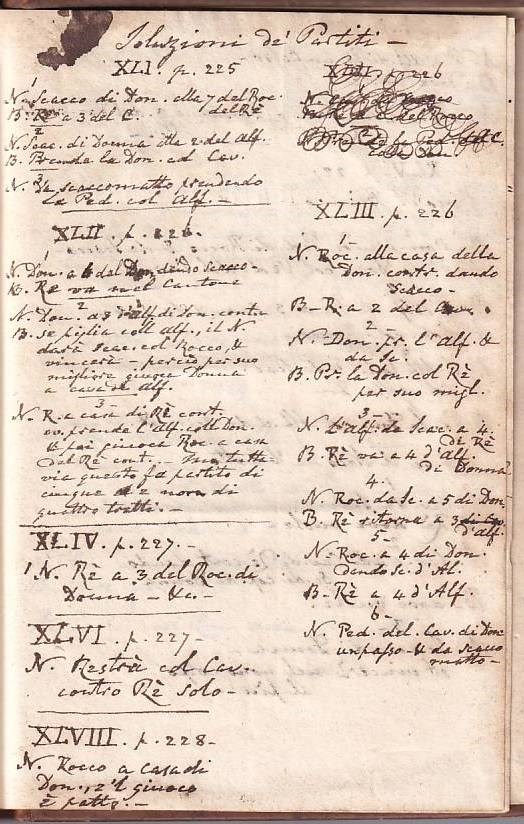 Soluzioni de' Partiti -
XLI. p. 225
1
N. Scacco di Don. alla 7 del Roc.
del Rè
B. Rè a 3 del C.
2
N. Scac. di Donna alla 2 del Alf.
B. Prenda la Don. col Cav.
3
N. Da scaccomatto prendendo
la Ped. col Alf. -
XLII. p. 226.
1
N. Don. a 6 del Don. dando scacco -
B. Rè va nel Cantone
2
N. Don. a 8 d'Alf. di Don. contr.
B. se piglia coll Alf., il N
darà Scac. col Rocco, &
vincerà - perciò per suo
migliore giuoca Donna
a casa di Alf.
3
N. R. a casa di Rè cont.
ov. prende l'Alf. coll Don.
& poi giuoca Roc. a casa
del Rè cont. - Ma tutta
via questo fa partito di
cinque e non di
quattro tratti. -
XLIV. p. 227. -
1 N. Rè a 3 del Roc. di
Donna - &c. -
XLVI. p. 227 -
N. Resterà col Cav.
contro Rè solo -
XLVIII. p. 228 -
N. Rocco a casa di
Don., e 'l giuoco
è patto. -
p. 226
XLIII. p. 226
1
N. Roc. alla casa della
Don. contr. dando
scacco -
B - R. a 2 del Cav.
2
N. - Don. pr. l'Alf. &
da Sc.
B. Pr. la Don. col Rè
per suo migl.
3
N. L'Alf. da Scac. a 4.
di Rè
B. Rè va a 4 d'Alf.
di Donna
4.
N. Roc. da Sc. a 5 di Don.
B. Rè ritorna a 3
d'Alf.
5
N. Roc. a 4 di Don.
dando Sc. d'Al.
B - Rè a 4 d'Alf.
6
N. Ped. del Cav. di Don
un passo & da scacco
matto -